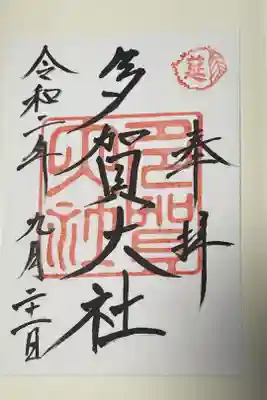 奉拝
多賀大社
令和二年 九月 二十一日
多賀大社
莚